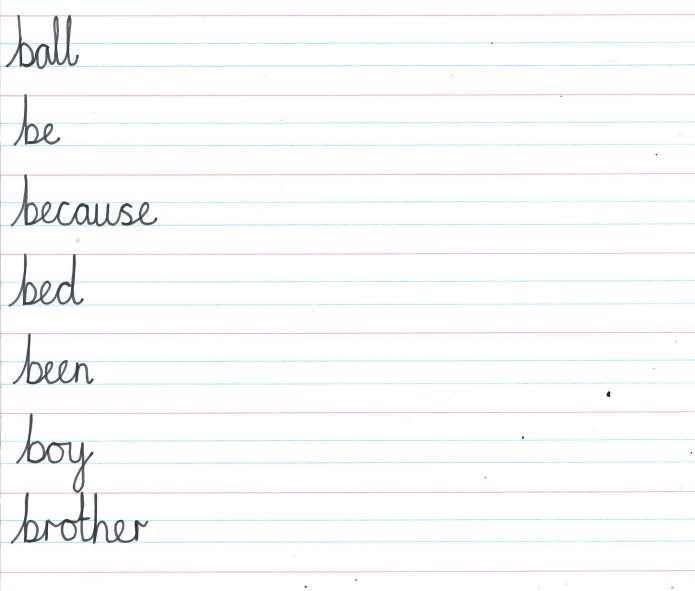 ball
be
because
bed
been
boy
brother